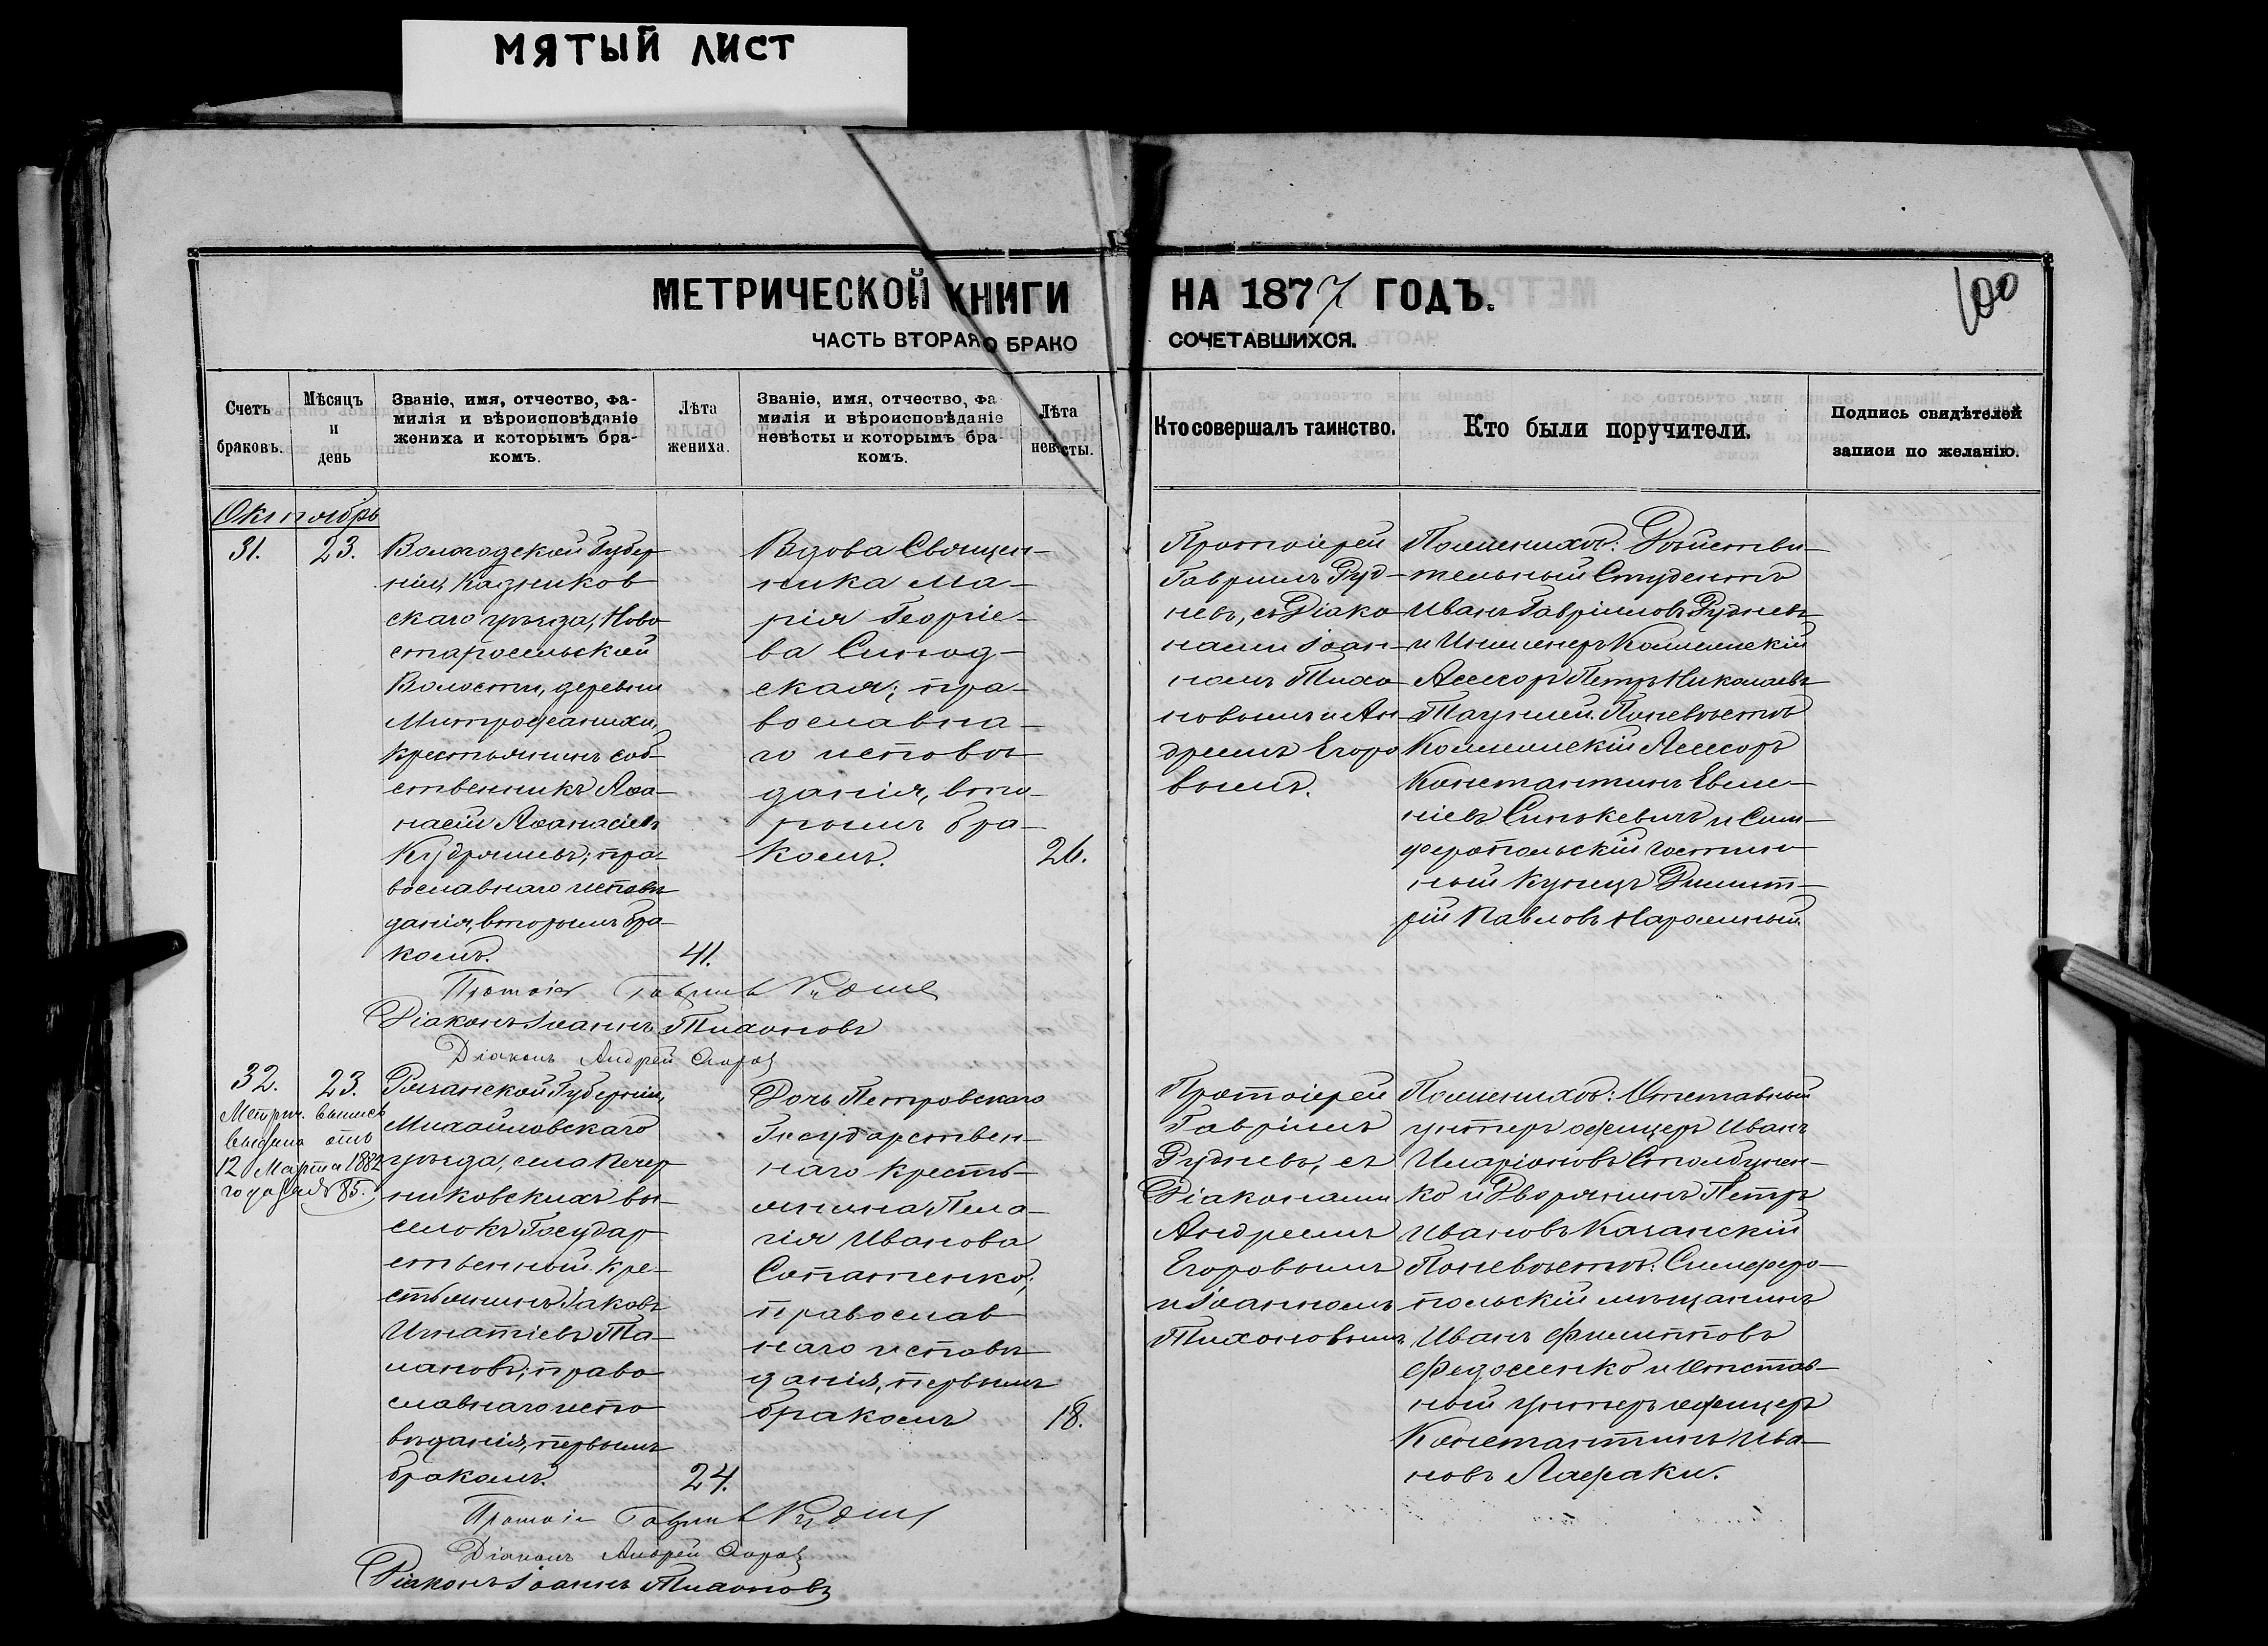 МЯТЫЙ ЛИСТ
МЕТРИЧЕСКОЙ КНИГИ НА 1877 ГОДЪ.
100
ЧАСТЬ ВТОРАЯ О БРАКО СОЧЕТАВШИХСЯ.
Счетъ браковъ.
Мѣсяцъ и день
Званіе, имя, отчество, фа-
милія и вѣроисповѣданіе
жениха и которымъ бра-
комъ.
Лѣта жениха.
Званіе, имя, отчество, фа
милія и вѣроисповѣданіе
невѣсты и которымъ бра-
комъ.
Лѣта невѣсты.
Кто совершалъ таинство.
Кто были поручители.
Подпись свидѣтелей
записи по желанію.
Октябрь
31.
23.
Вологодской Губер
ніи, Кадников
скаго уѣзда, Ново
старосельской
Волости, деревни
Митрофанихи,
крестьянинъ соб-
ственникъ Аѳа-
насій Аѳанасіевъ
Кудряшевъ; пра-
вославнаго исповѣ
данія, вторымъ бра-
комъ.
41.
Вдова Священ-
ника Ма-
рія Георгіе-
ва Синод-
ская; пра-
вославна-
го исповѣ
данія, вто-
рымъ бра-
комъ.
26.
Протоіерей
Гавріилъ Руд-
невъ, съ Діако
нами Іоан-
номъ Тихо
новымъ и Ан-
дреемъ Егоро
вымъ.
По женихѣ: Дѣйстви-
тельный Студентъ
Иванъ Гавріиловъ Рудневъ
и Инженеръ Коллежскій
Ассесоръ Петръ Николаевъ
По невѣстѣ
Коллежскій Ассесоръ
Константинъ Евге-
ніевъ Синькевичъ и Сим-
феропольскій
ный Купецъ Димит-
рій Павловъ
Протоіе Гавріилъ Руднев
Діаконъ Іоаннъ Тихоновъ
Діаконъ Андрей Егоров
32.
23.
Метрич. выпись
выдана отъ
12 Марта 1882
года за № 85.
Рязанской Губерніи,
Михайловскаго
уѣзда, села Печер
никовскихъ вы
селокъ Государ
ственный кре-
стьянинъ Іаковъ
Игнатіевъ Та-
лановъ; право
славнаго испо
вѣданія, первымъ
бракомъ.
24.
Дочь Петровскаго
Государствен-
наго кресть-
янина Пела-
гія Иванова
Сопатенко;
православ
наго исповѣ
данія, первымъ
бракомъ
18.
Протоіерей
Гавріилъ
Рудневъ, съ
Діаконами
Андреемъ
Егоровымъ
и Іоанномъ
Тихоновымъ.
По женихѣ: Отставный
унтеръ офицеръ Иванъ
Иларіоновъ
и Дворянинъ Петръ
Ивановъ Качанскій
По невѣстѣ: Симферо-
польскій мѣщанинъ
Иванъ Филипповъ
Федосенко и Отстав-
ный унтеръ офицеръ
Константинъ Ива-
новъ Лафаки.
Протоіе Гавріилъ Руднев
Діаконъ Андрей Егоров
Діаконъ Іоаннъ Тихоновъ